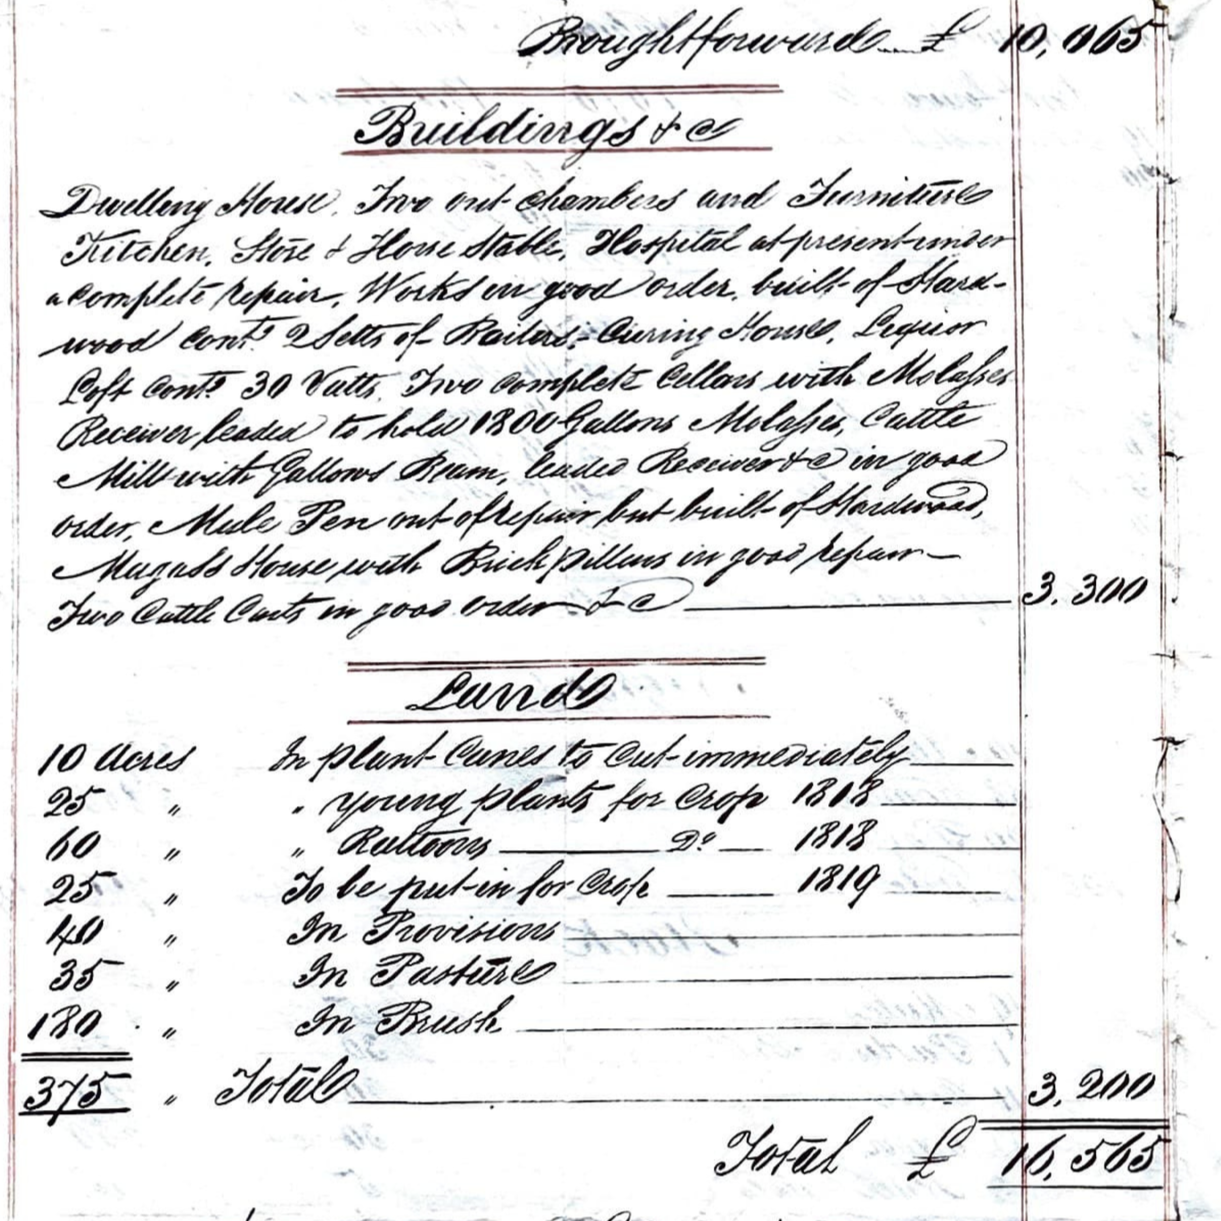 Brought forward £ 10,065
Buildings & c
Dwelling House, Two out chambers and Furniture
Kitchen, Store & Horse Stable, Hospital at present under
a complete repair, Works in good order, built of Hard-
wood cont.g 2 Setts of Boilers, Curing House, Lequor
Loft cont.g 30 Vatts, Two complete Cellars with Molasses
Receiver leaded to hold 1800 Gallons Molasses, Cattle
Mill with Gallows Beam, leaded Receiver & c in good
order, Mule Pen out of repair but built of Hardwood,
Magass House with Brick pillars in good repair —
Two Cattle Carts in good order & c 3,300
Land
10 Acres In plant Canes to cut immediately
25 " " young plants for Crop 1818
60 " " Rattoons D.o 1818
25 " To be put in for Crop 1819
40 " In Provisions
35 " In Pasture
180 " In Brush
375 " Total 3,200
Total £ 16,565